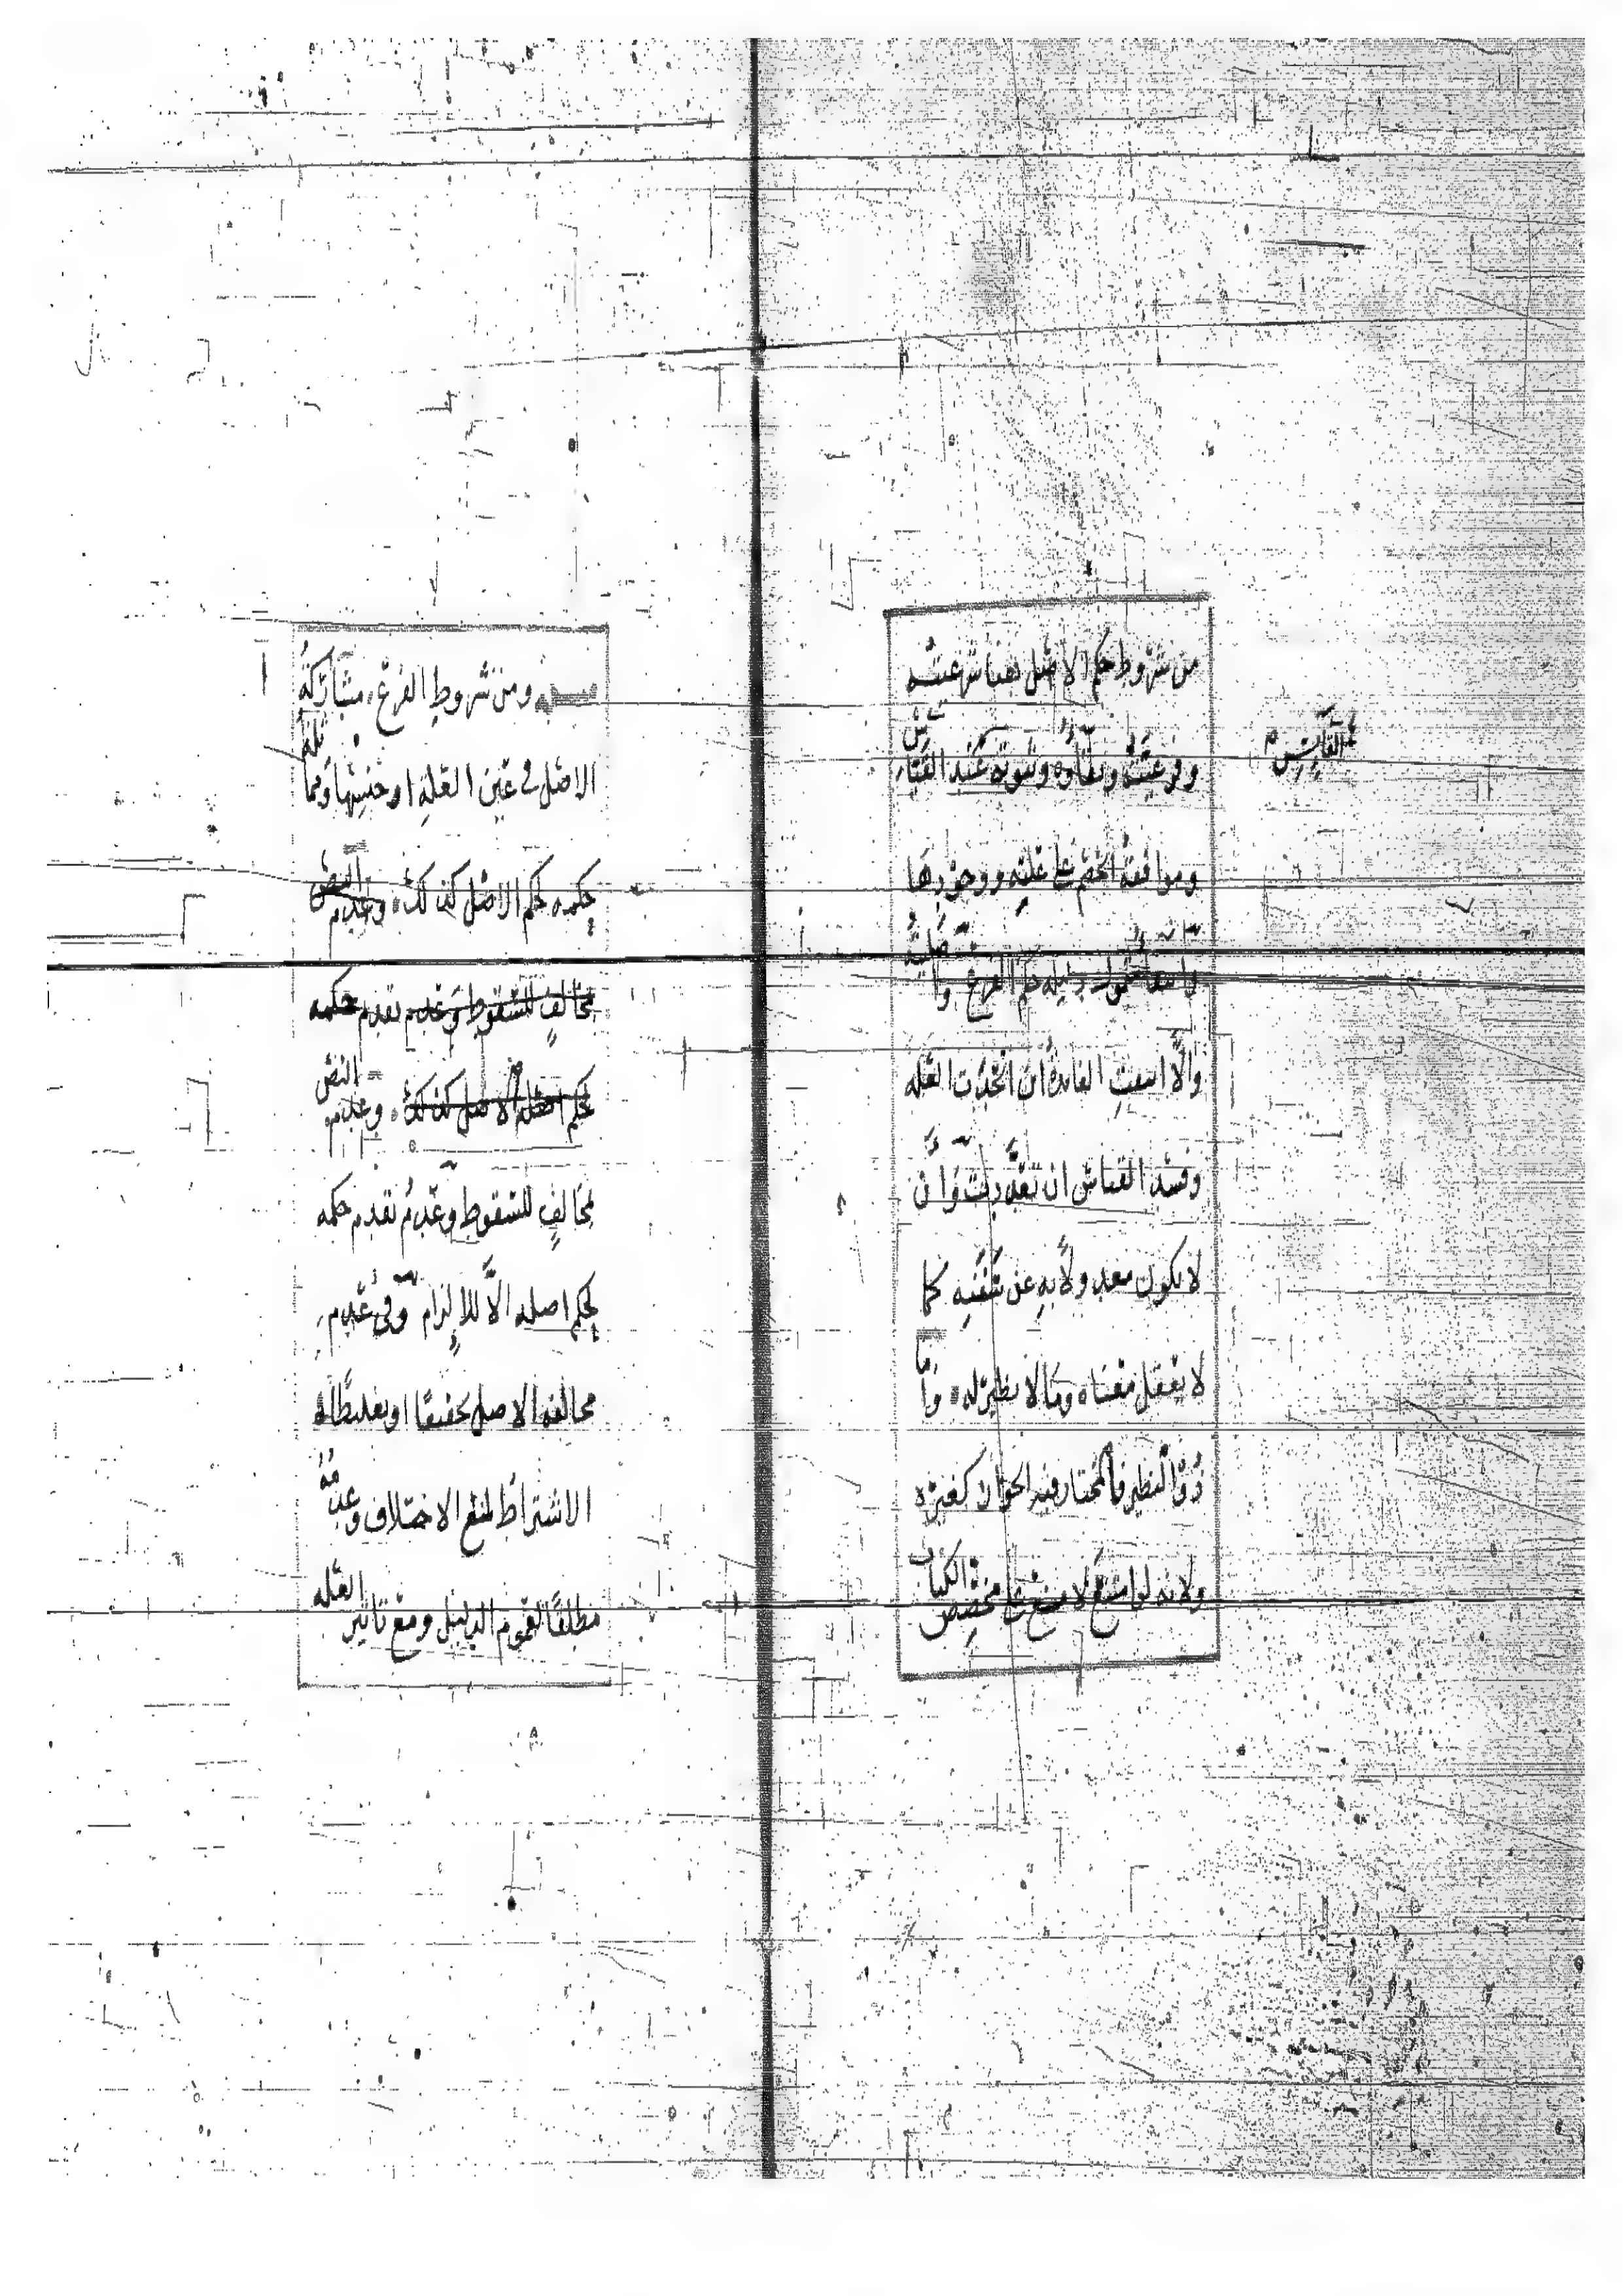 من شروط حكم الاصل هنا شرعيته
وفرعيته وبقاؤه وثبوته عند القياس
القايس
وموافقة الخصم على علته ووجودها
وامتفا شمول دليله حكم الفرع وا
والا انتفت الفايدة ان اتحدت العله
وفسد القياس ان تعددت وان
لا يكون معدولا به عن سننه كما
لا يعقل معناه وما لا نظير له واما
ذو النظير فالمختار فيه الجواز كغيره
ولانه لو امتنع لامتنع على مخصص الكتاب
ومن شروط الفرع مشاركة
الاصل في عين العلة او جنسها ومما ثلة
حكمه لحكم الاصل كذلك وعدم النص
مخالف للسقوط وعدم تقدم حكمه
لحكم الاصل كذلك وعدم النص
مخالف للسقوط وعدم تقدم حكمه
لحكم اصله الا للالزام وفي عدم
مخالفة الاصل تخفيفا او تغليظا
الاشتراط لمنع الاختلاف وعدمه
مطلقا لعموم الدليل ومع تاثير العله